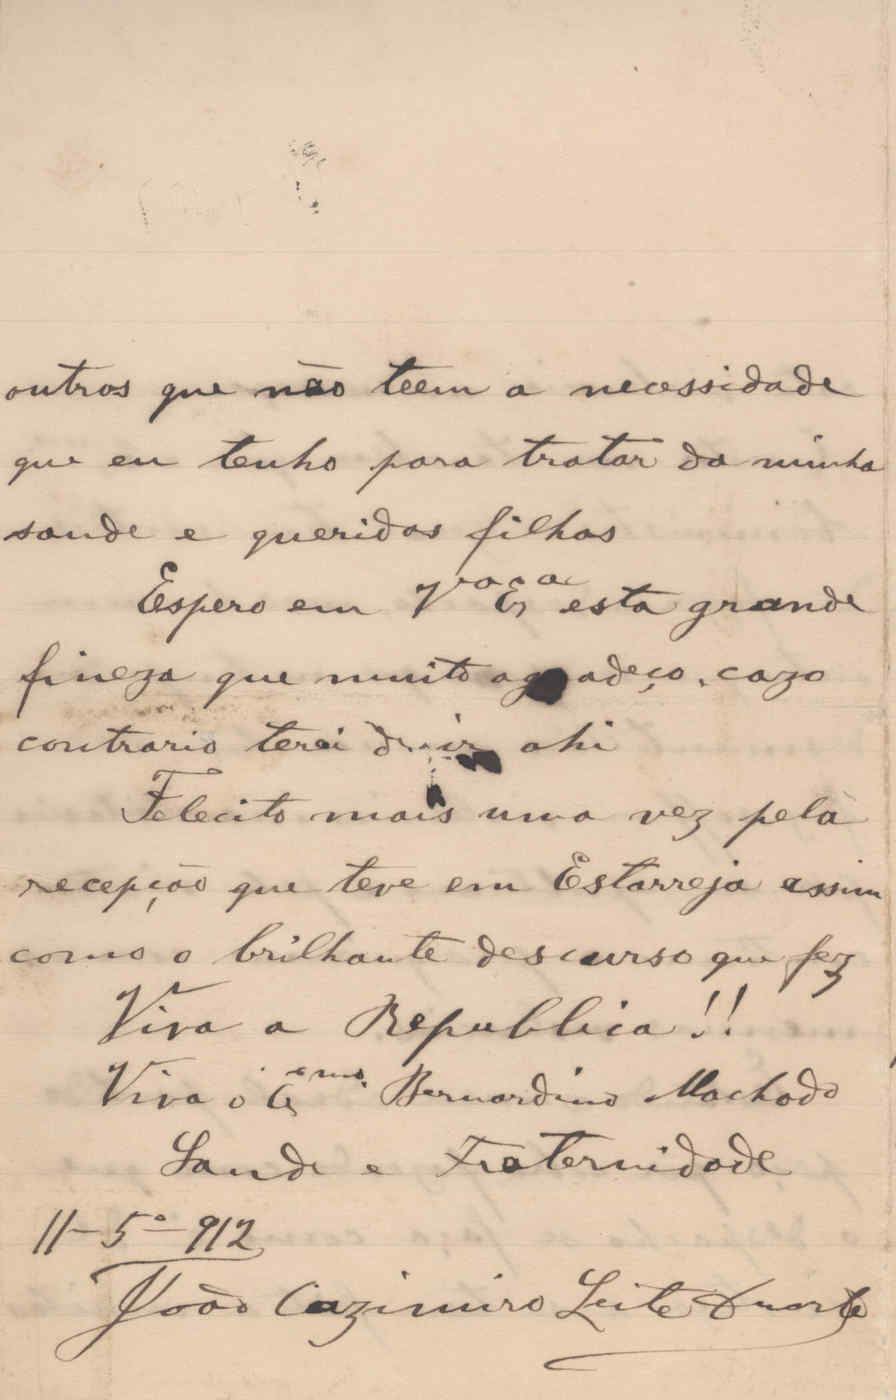 outros que não teem a necessidade
que eu tenho para tratar da minha
saude e queridas filhas
Espero em Vª Exª esta grande
fineza que muito agradeço, cazo
contrario terei de ir ahi
Felecito mais uma vez pela
recepção que teve em Estarreja assim
como o brilhante descurso que fez
Viva a Republica!!
Viva o Exmo. Bernardino Machado
Saude e Fraternidade
11-5º-912
João Cazimiro Leite Duarte